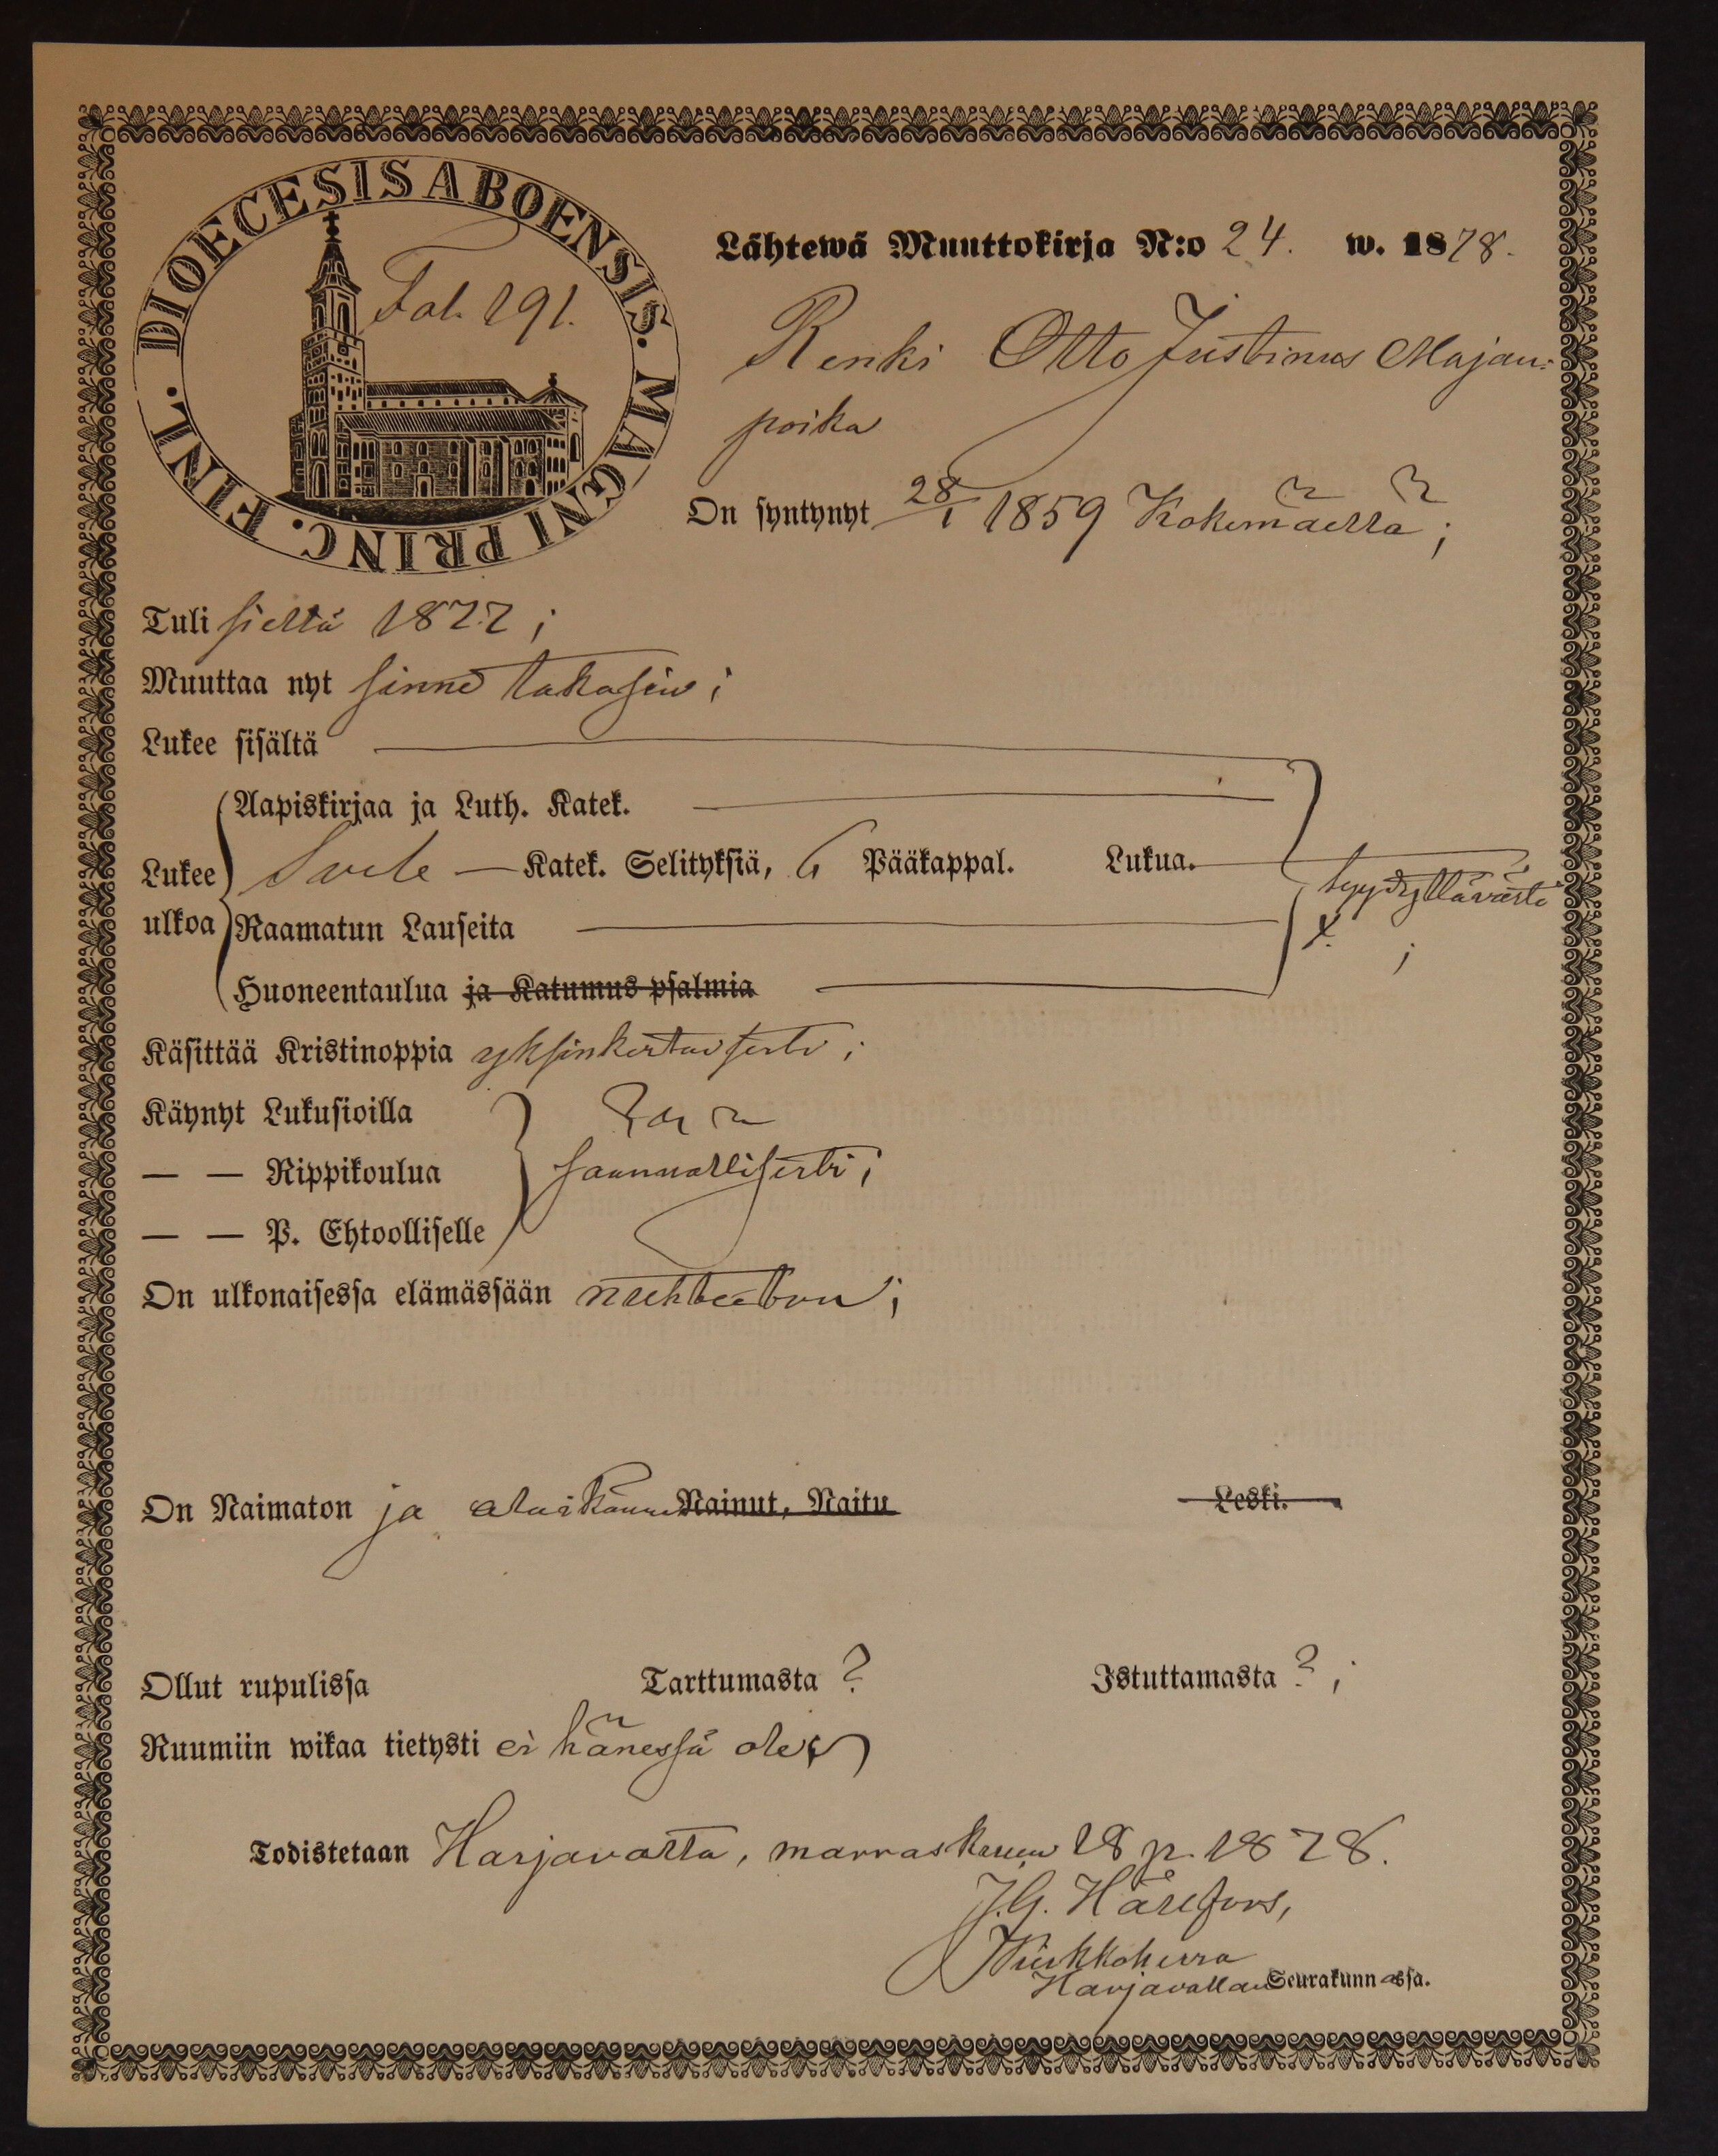 DIOECESIS ABOENSIS. MAGNI PRINC. FINL.
Fol. 191.
Lähtewä Muuttokirja N:o 24. w. 1878.
Renki Otto Justinus Majan-
poika
On syntynyt 28/1 1859 Kokemäellä;
Tuli sieltä 1877;
Muuttaa nyt sinne takasin;
Lukee sisältä
Aapiskirjaa ja Luth. Katek.
Lukee ulkoa
Katek. Selityksiä, 6 Pääkappal. Lukua.
tyydyttäväesti;
Raamatun Lauseita
Huoneentaulua ja Katumus psalmia
Käsittää Kristinoppia yksinkertaisesti;
Käynyt Lukusioilla
— — Rippikoulua säännöllisesti;
— — P. Ehtoolliselle
On ulkonaisessa elämässään nuhteeton;
On Naimaton ja Nainut, Naitu Leski.
Ollut rupulissa Tarttumasta ? Istuttamasta ?;
Ruumiin wikaa tietysti ei hänessä ole
Todistetaan Harjavalta, marraskuun 18 p. 1878.
J.G. Hårefors,
Kirkkoherra
Harjavallan Seurakunnassa.